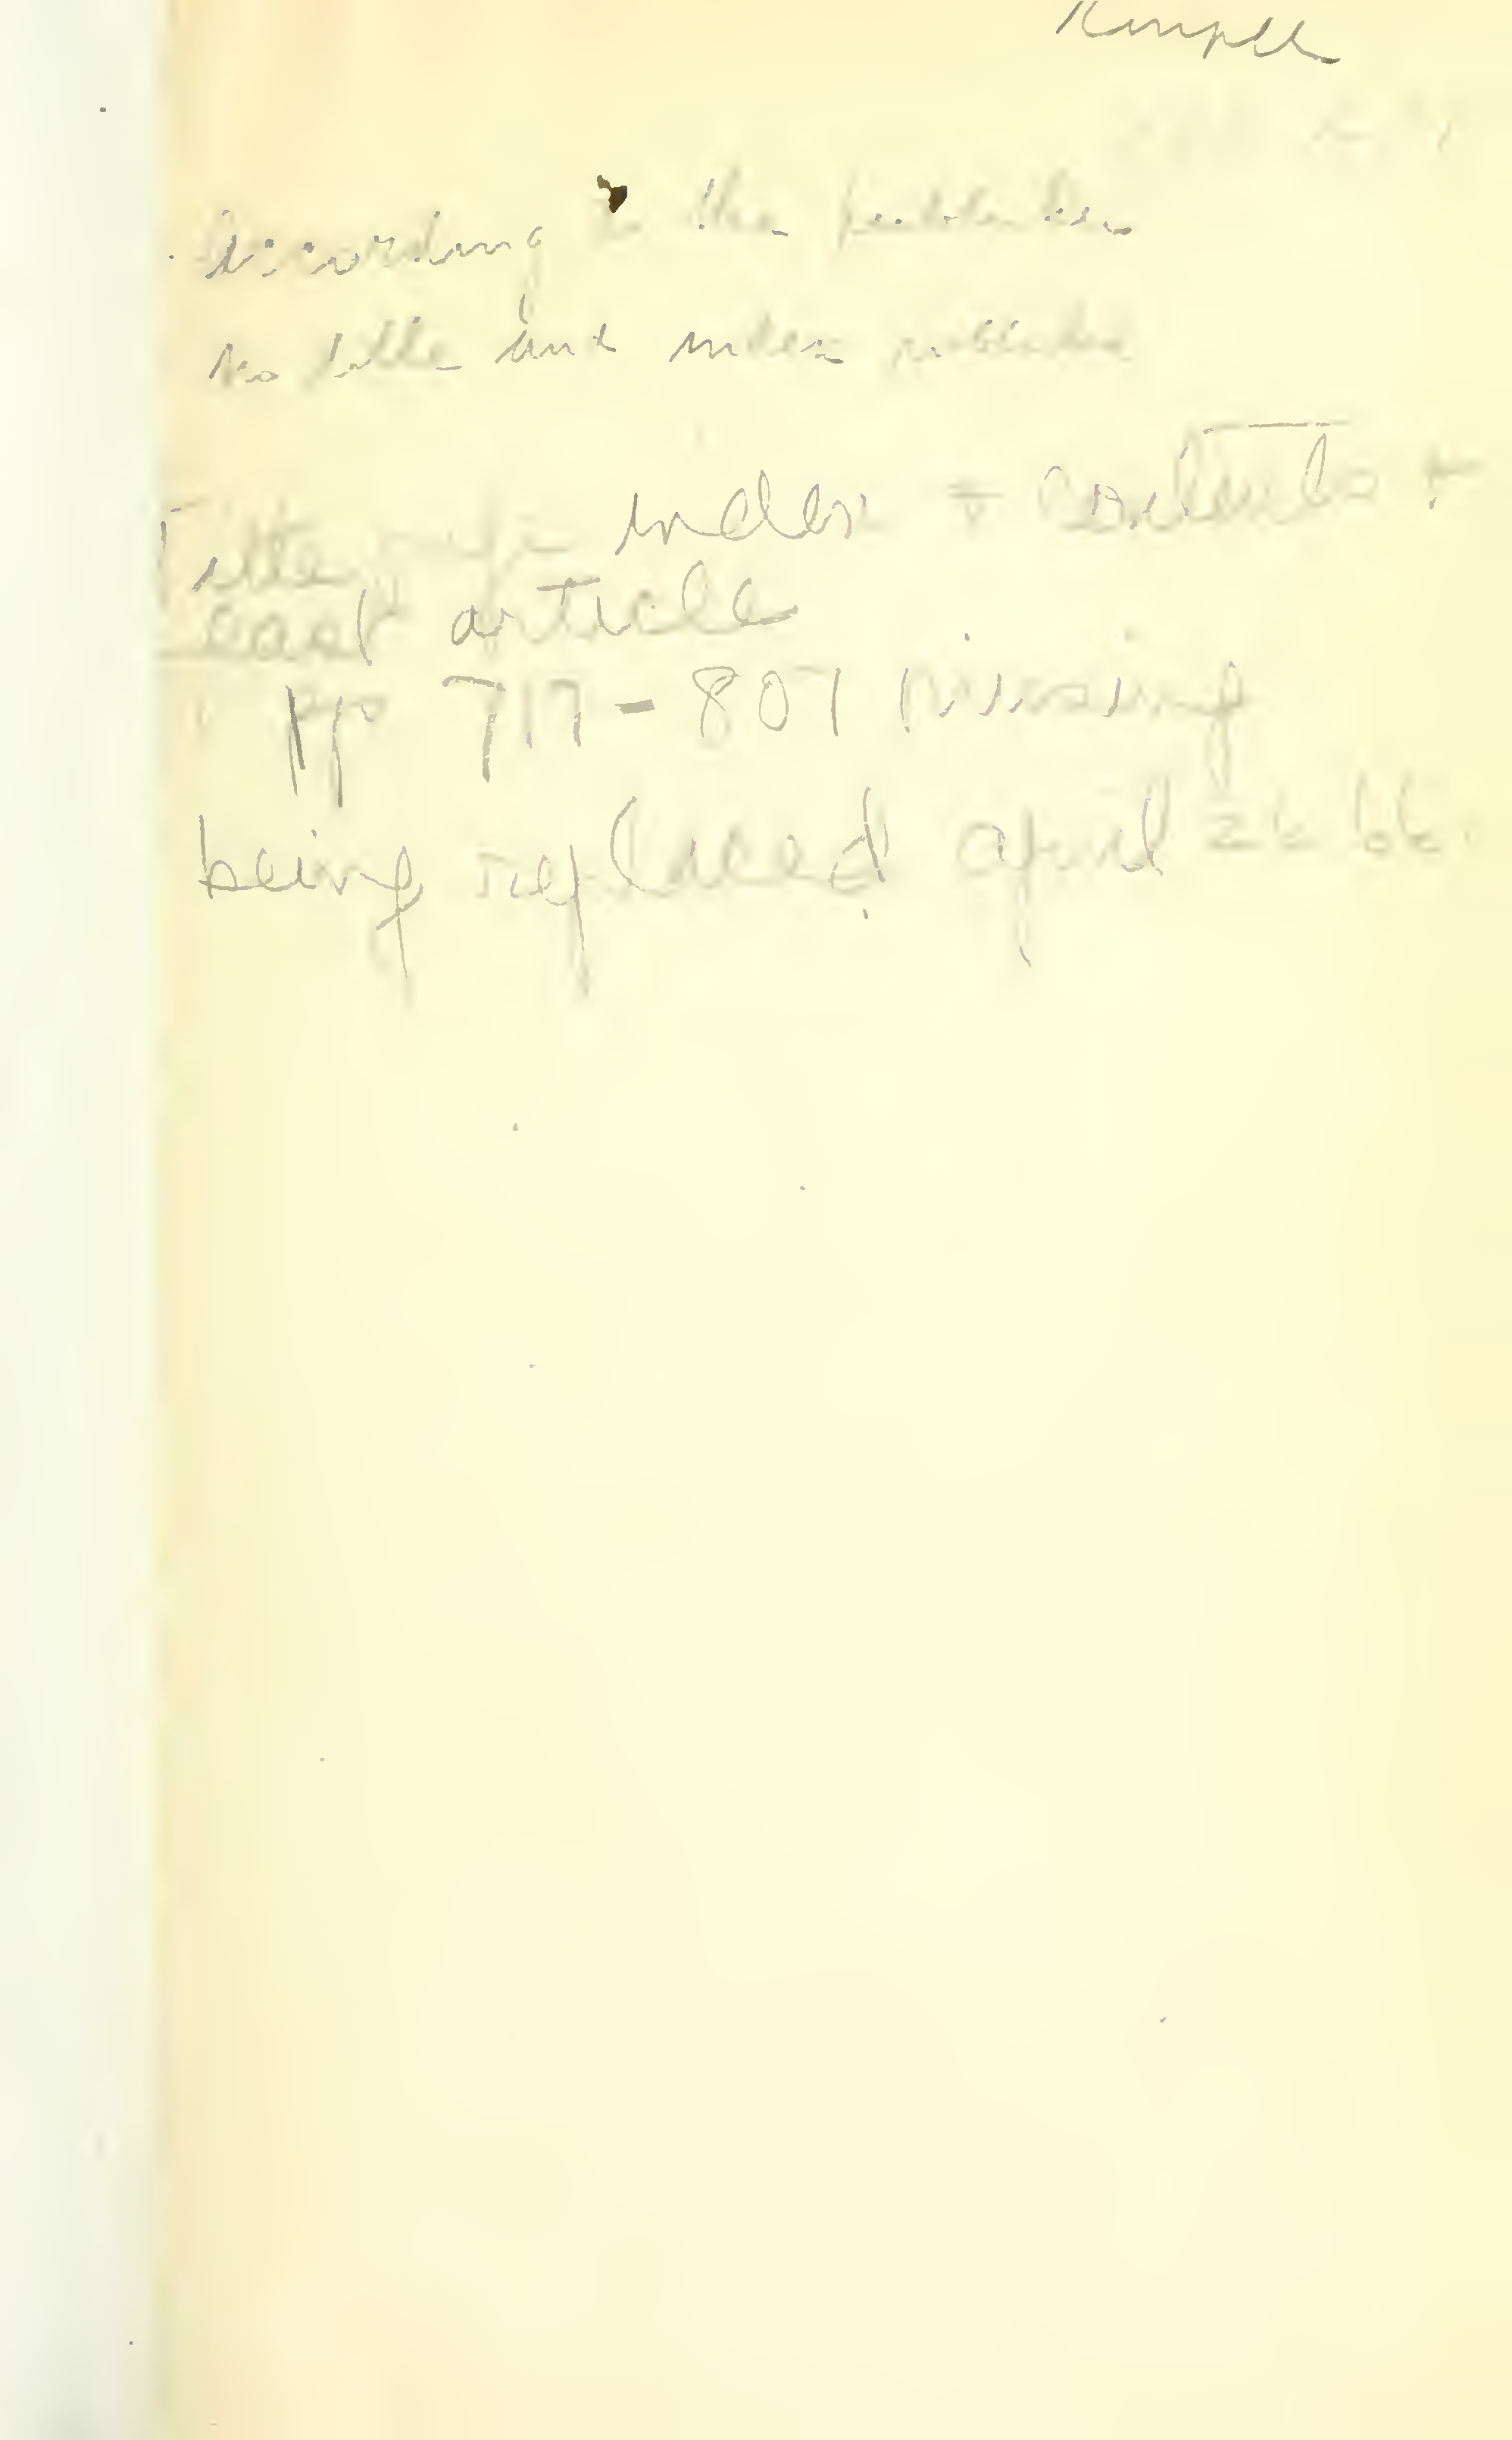 According to the publisher
no title and index published
Title page index + contents +
last article
pp 717-807 missing
being replaced april 26 66.